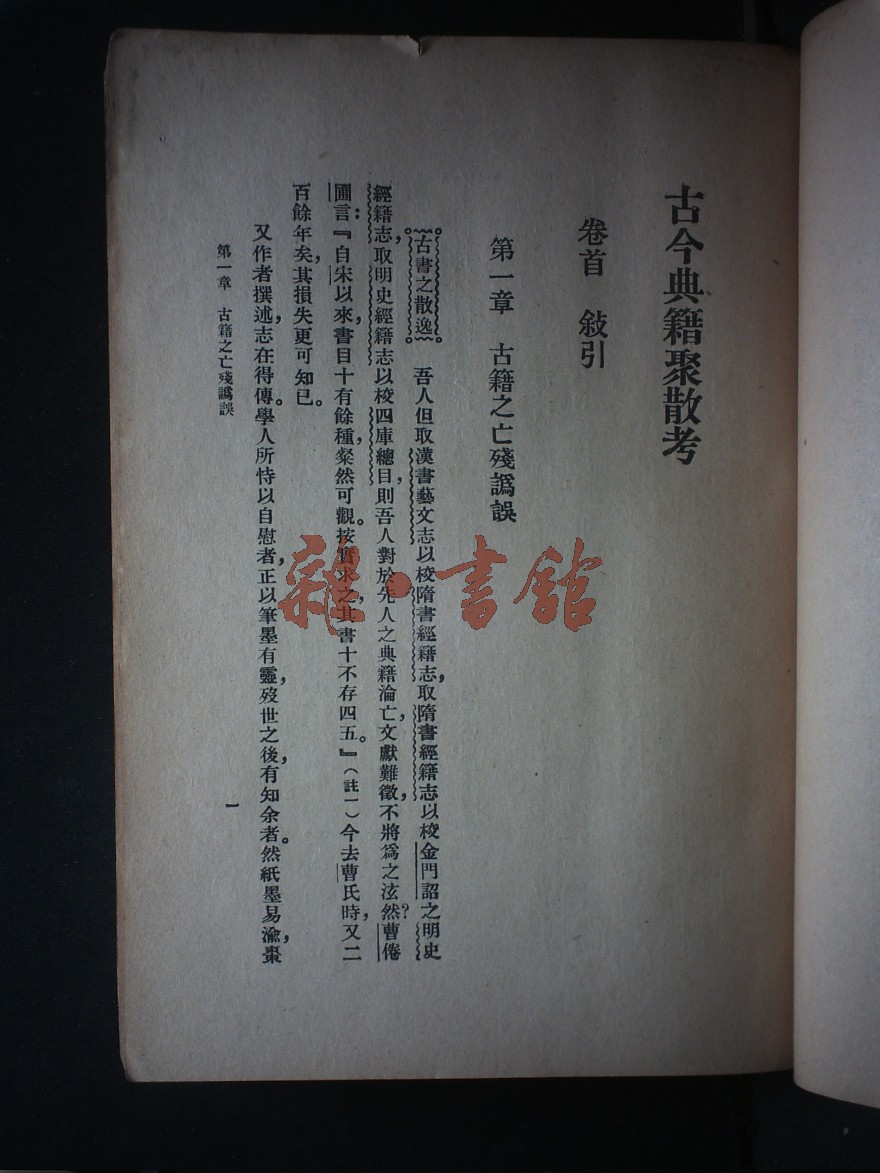 古今典籍聚散考
卷首　敍引
第一章　古籍之亡殘譌誤
古書之散逸。　吾人但取漢書藝文志以校隋書經籍志，取隋書經籍志以校金門詔之明史
經籍志，取明史經籍志以校四庫總目，則吾人對於先人之典籍淪亡，文獻難徵，不將爲之泫然？曹倦
圃言：『自宋以來，書目十有餘種，粲然可觀。按實求之，其書十不存四五。』（註一）今去曹氏時，又二
百餘年矣，其損失更可知已。
又作者撰述，志在得傳。學人所恃以自慰者，正以筆墨有靈，歿世之後，有知余者。然紙墨易渝，棗
第一章　古籍之亡殘譌誤
一
雜·書館